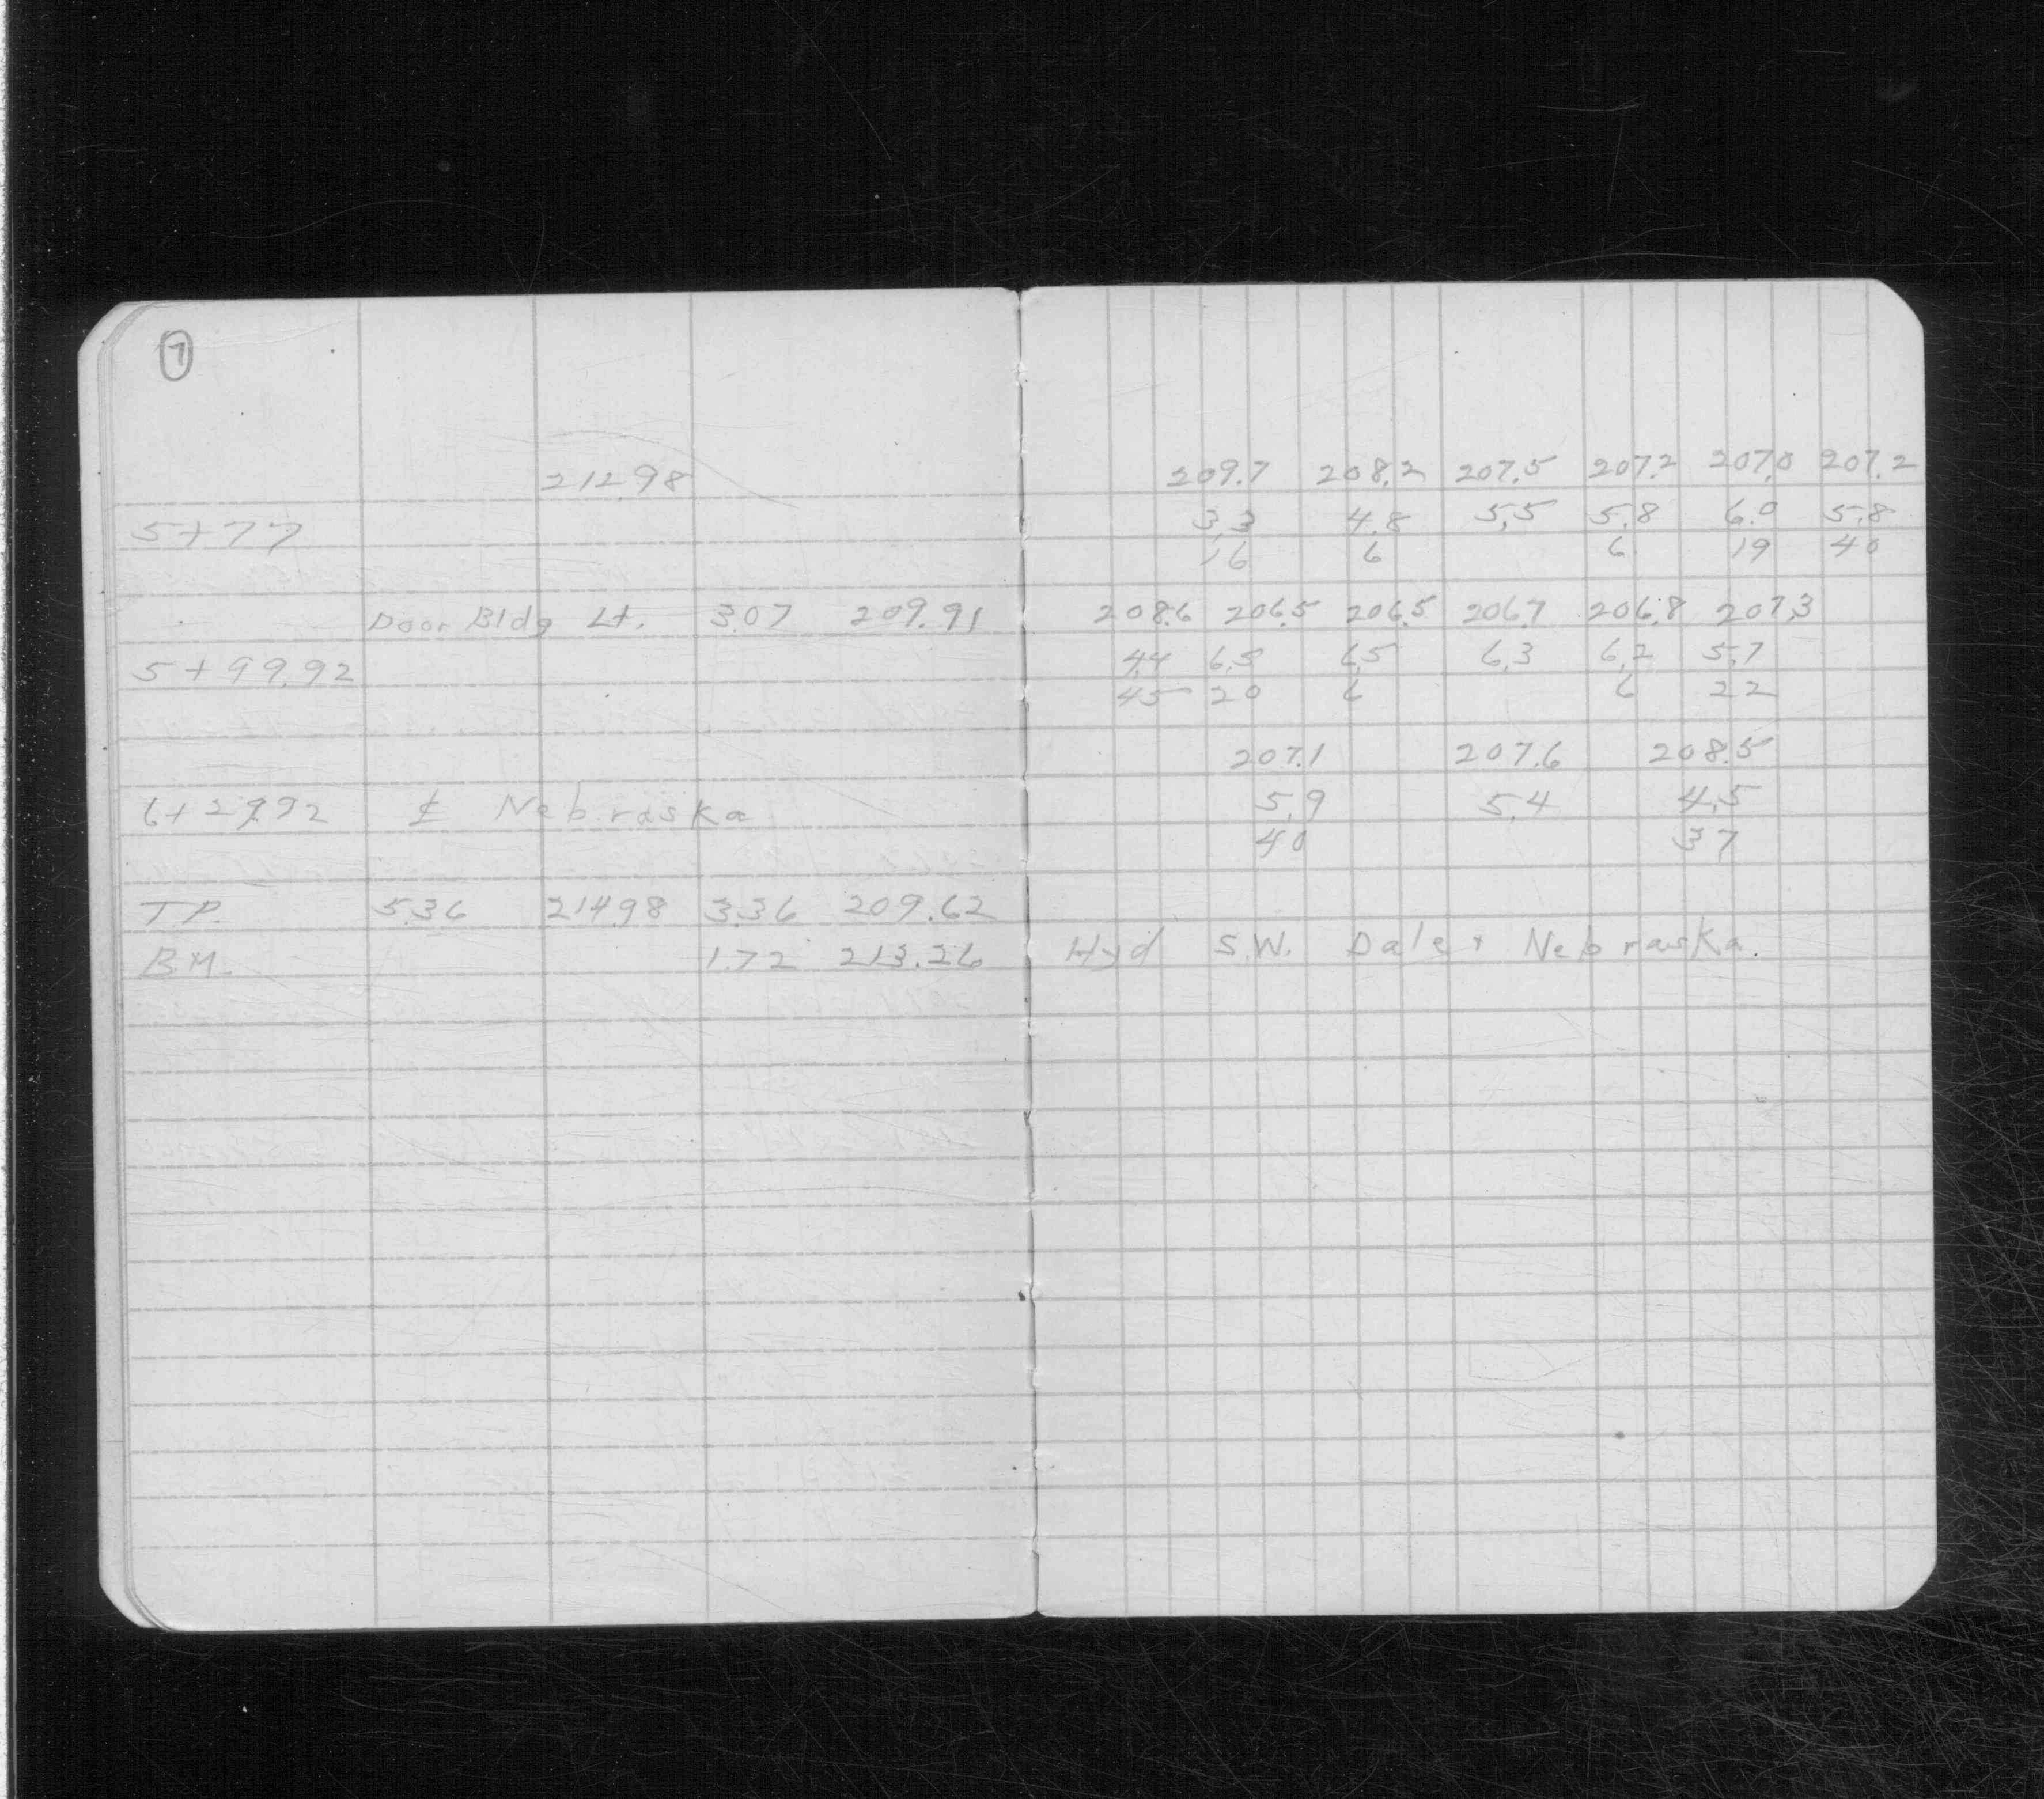 7
212.98 209.7 208.2 207.5 207.2 207.0 207.2
5+77 3.3 4.8 5.5 5.8 6.0 5.8
16 6 6 19 40
Door Bldg Lt. 3.07 209.91 208.6 206.5 206.5 206.7 206.8 207.3
5+99.92 4.4 6.5 6.5 6.3 6.2 5.7
45 20 6 6 22
207.1 207.6 208.5
6+29.92 ℄ Nebraska 5.9 5.4 4.5
40 37
T.P. 5.36 214.98 3.36 209.62
B.M. 1.72 213.26 Hyd S.W. Dale + Nebraska.